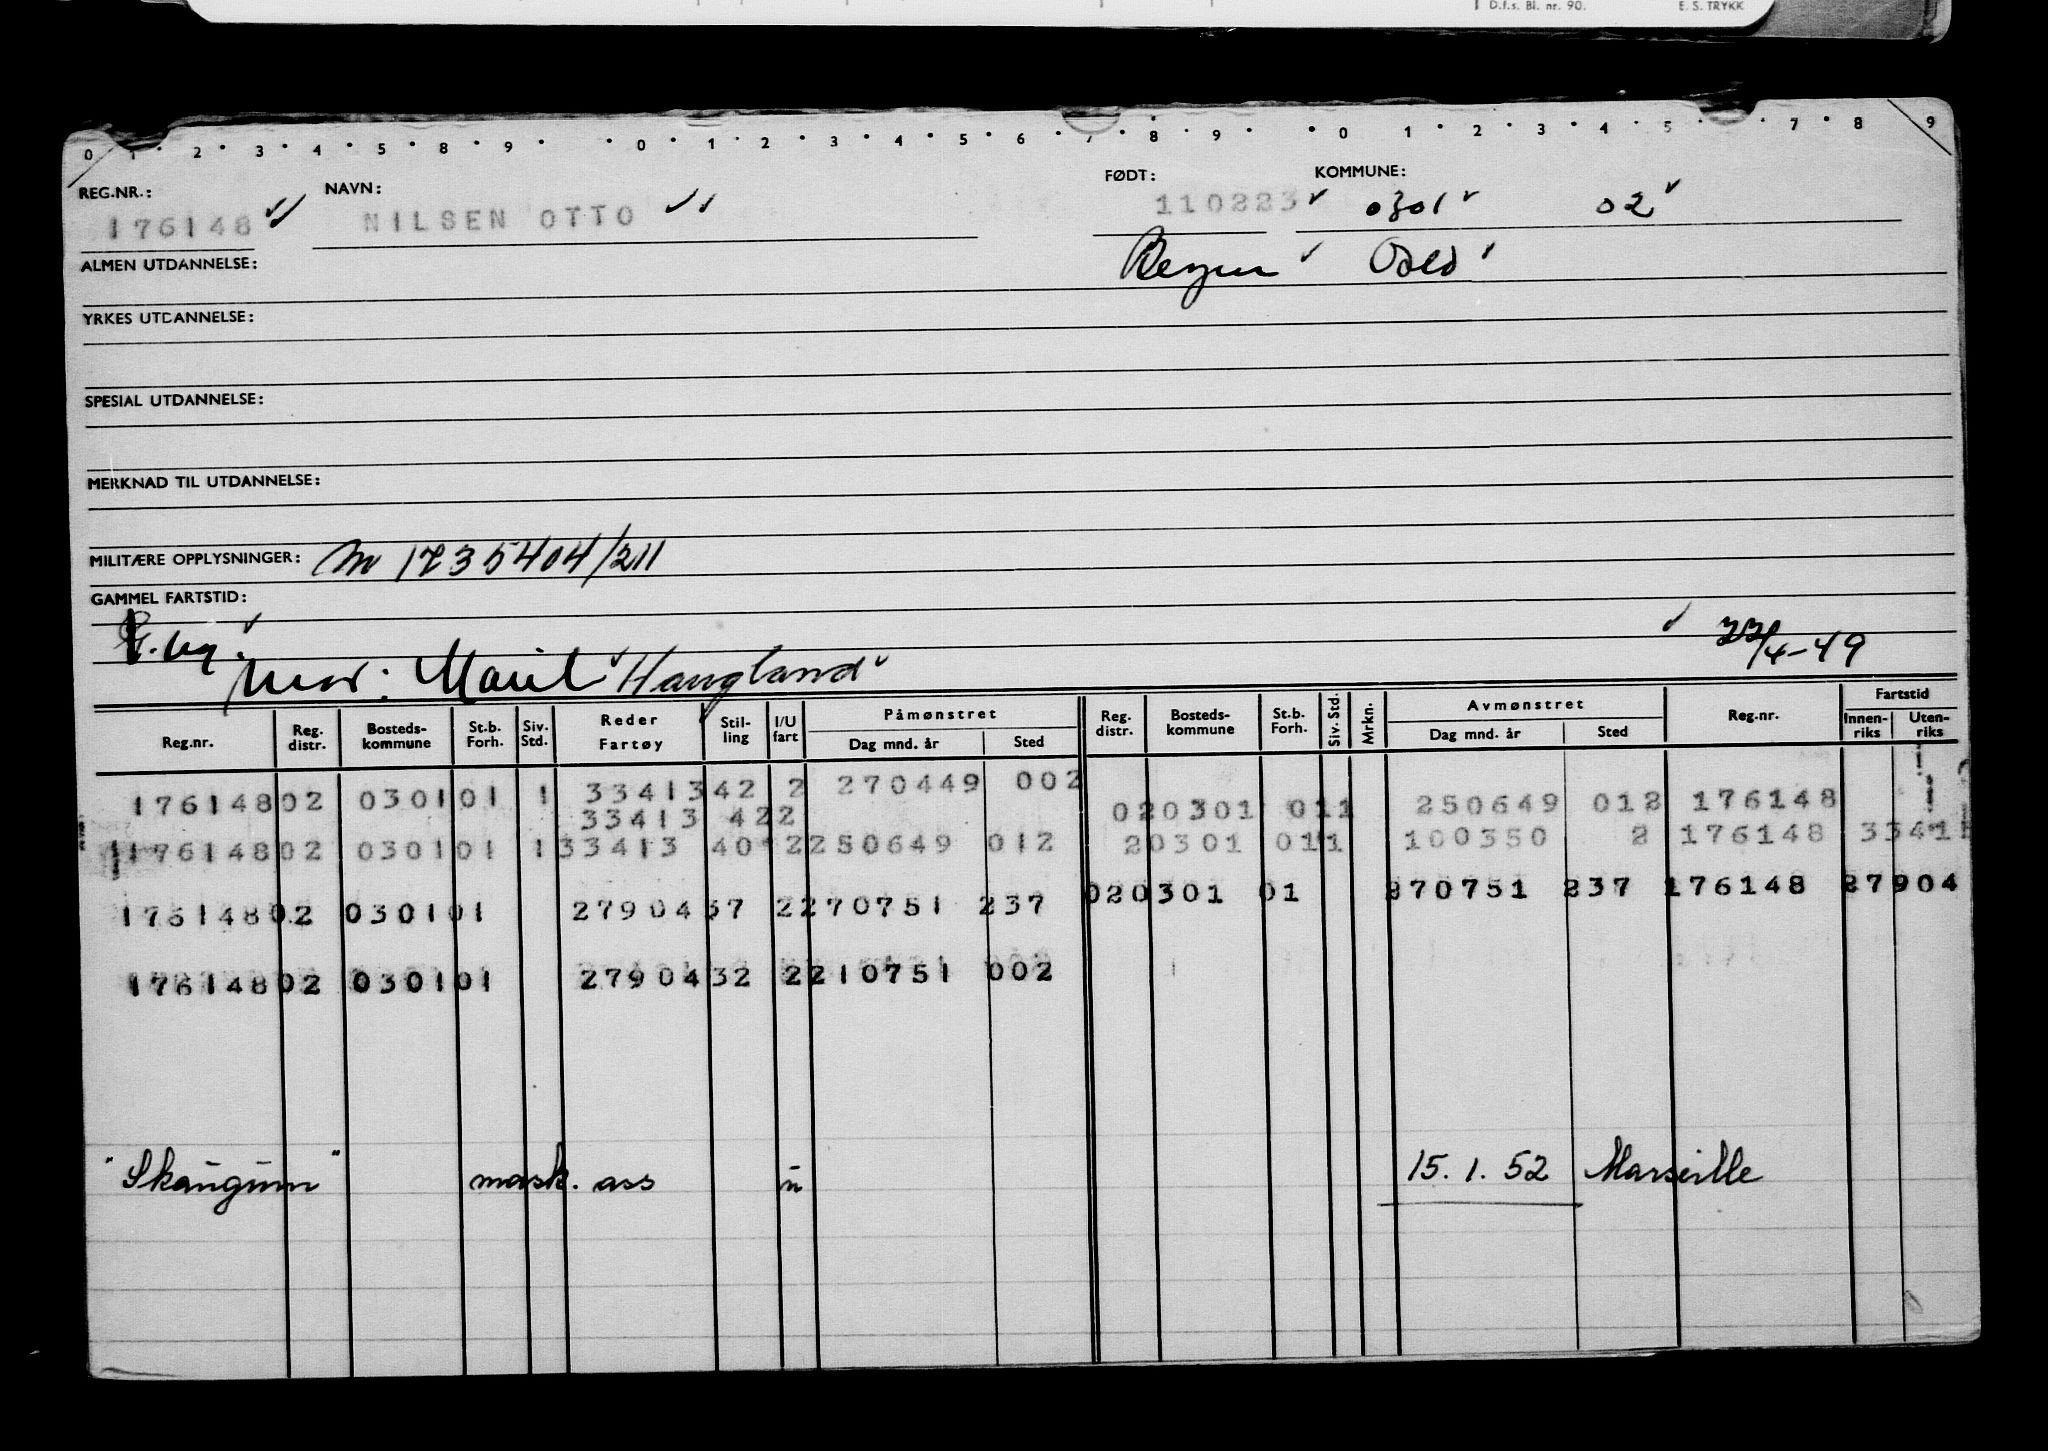 D.f.s. Bl. nr. 90. E. S. TRYKK
0 1 2 3 4 5 8 9 0 1 2 3 4 5 6 7 8 9 0 1 2 3 4 5 7 8 9
REG.NR.: NAVN: FØDT: KOMMUNE:
176148 NILSEN OTTO 110223 0301 02
ALMEN UTDANNELSE: Bergen Oslo
YRKES UTDANNELSE:
SPESIAL UTDANNELSE:
MERKNAD TIL UTDANNELSE:
MILITÆRE OPPLYSNINGER: m 1735404/211
GAMMEL FARTSTID:
22/4-49
mor: Marit Haugland
Reg.nr. Reg. distr. Bosteds-kommune St.b. Forh. Siv. Std. Reder Fartøy Stil-ling I/U fart Påmønstret Dag mnd. år Sted Reg. distr. Bosteds-kommune St.b. Forh. Siv. Std. Mrkn. Avmønstret Dag mnd. år Sted Reg.nr. Fartstid Innen-riks Uten-riks
17614802 030101 1 3341342 2 270449 002
33413 422 020301 011 250649 012 176148
17614802 030101 133413 40 2250649 012 20301 011 100350 2 176148 33413
17614802 030101 2790437 2270751 237 020301 01 270751 237 176148 27904
17614802 030101 2790432 2210751 002
"Skaugum" mask. ass u 15.1.52 Marseille